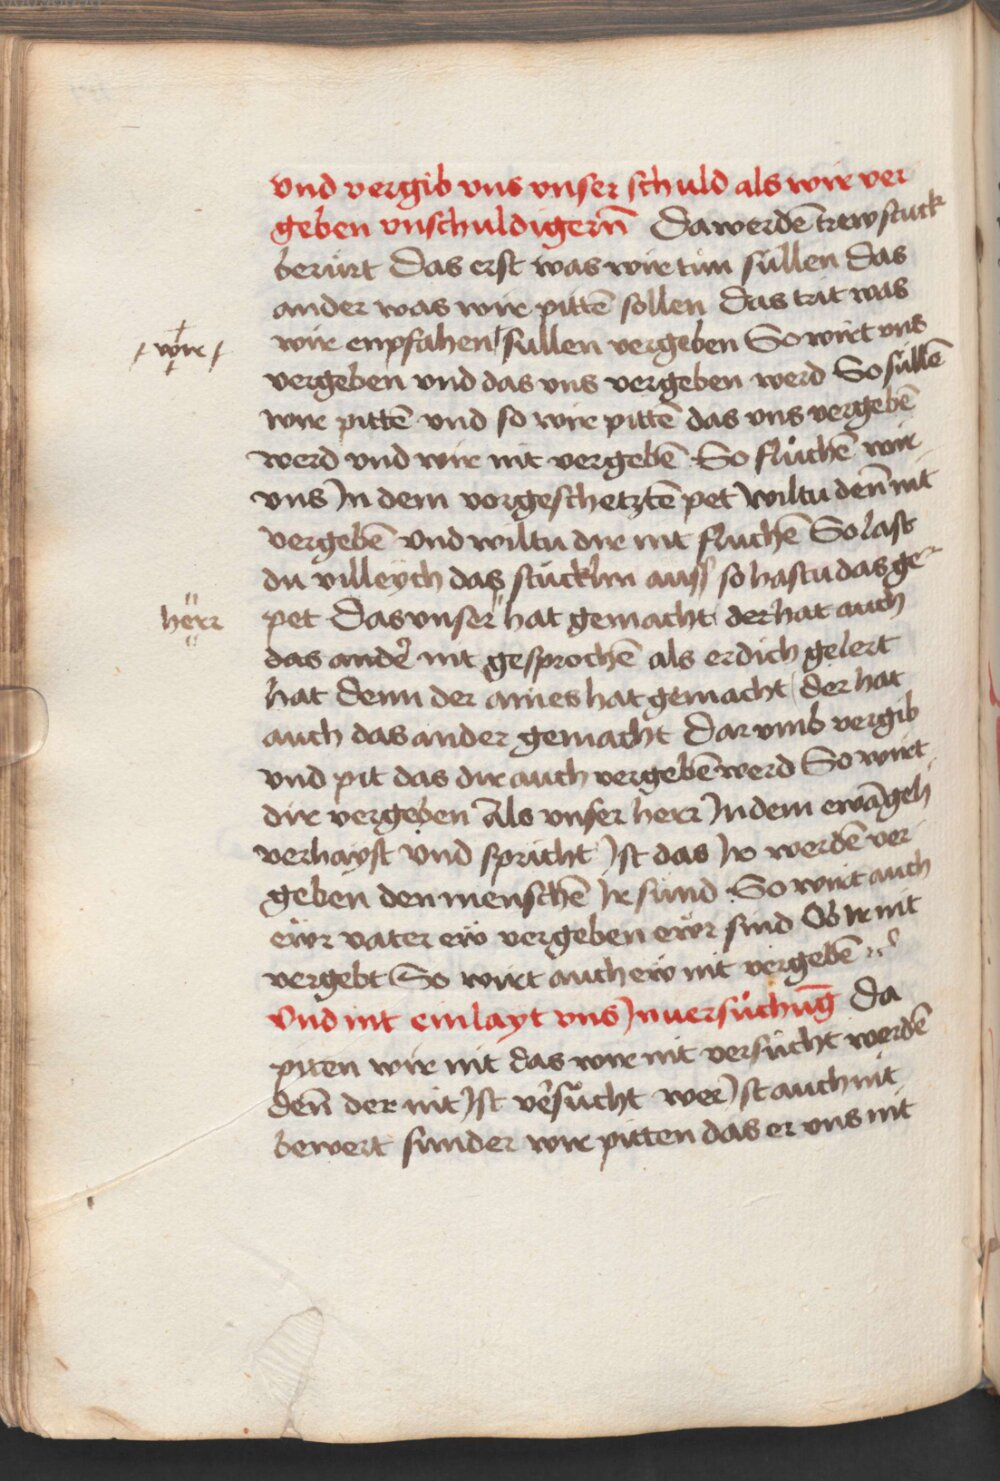 vnd vergib vns vnser schuld als wir ver
geben vnschuldigernn̄ Da werdē trew stuck
berürt Das erst was wir tun süllen Das
ander was wir pittē sollen Das trit was
/ wir / wir enpfahen sullen vergeben So wirt vns
vergeben vnd das vns vergeben werd So süllē
wir pittē vnd so wir pittē das vns vergebē
werd vnd wir nit vergebē So flůchē wir
vns Jn dem vorgeschetztē pet wiltu den̄ nit
vergebē vnd wiltu dir nit fluchē So last
du villeych das stücklin auss so hastu das ge
herr pet Das vnser hat gemacht der hat auch
das ander nit gesprochē als er dich gelert
hat Denn der aines hat gemacht der hat
auch das ander gemacht Dar vmb vergib
vnd pit das dir auch vergebē werd So wirt
dir vergeben Als vnser herr Jn dem ewāgeli
verhayst vnd spricht Jst das Jr werdē ver
geben den menschē Jr sünd So wirt auch
ewr vater ew vergeben ewr sind Ob Ir nit
vergebt So wirt auch ew nit vergebē
vnd nit einlayt vns Jn versůchūg Da
piten wir nit das wir nit versücht werdē
den̄ der nit Jst versücht wer Jst auch nit
bewert sunder wir pitten das er vns nit